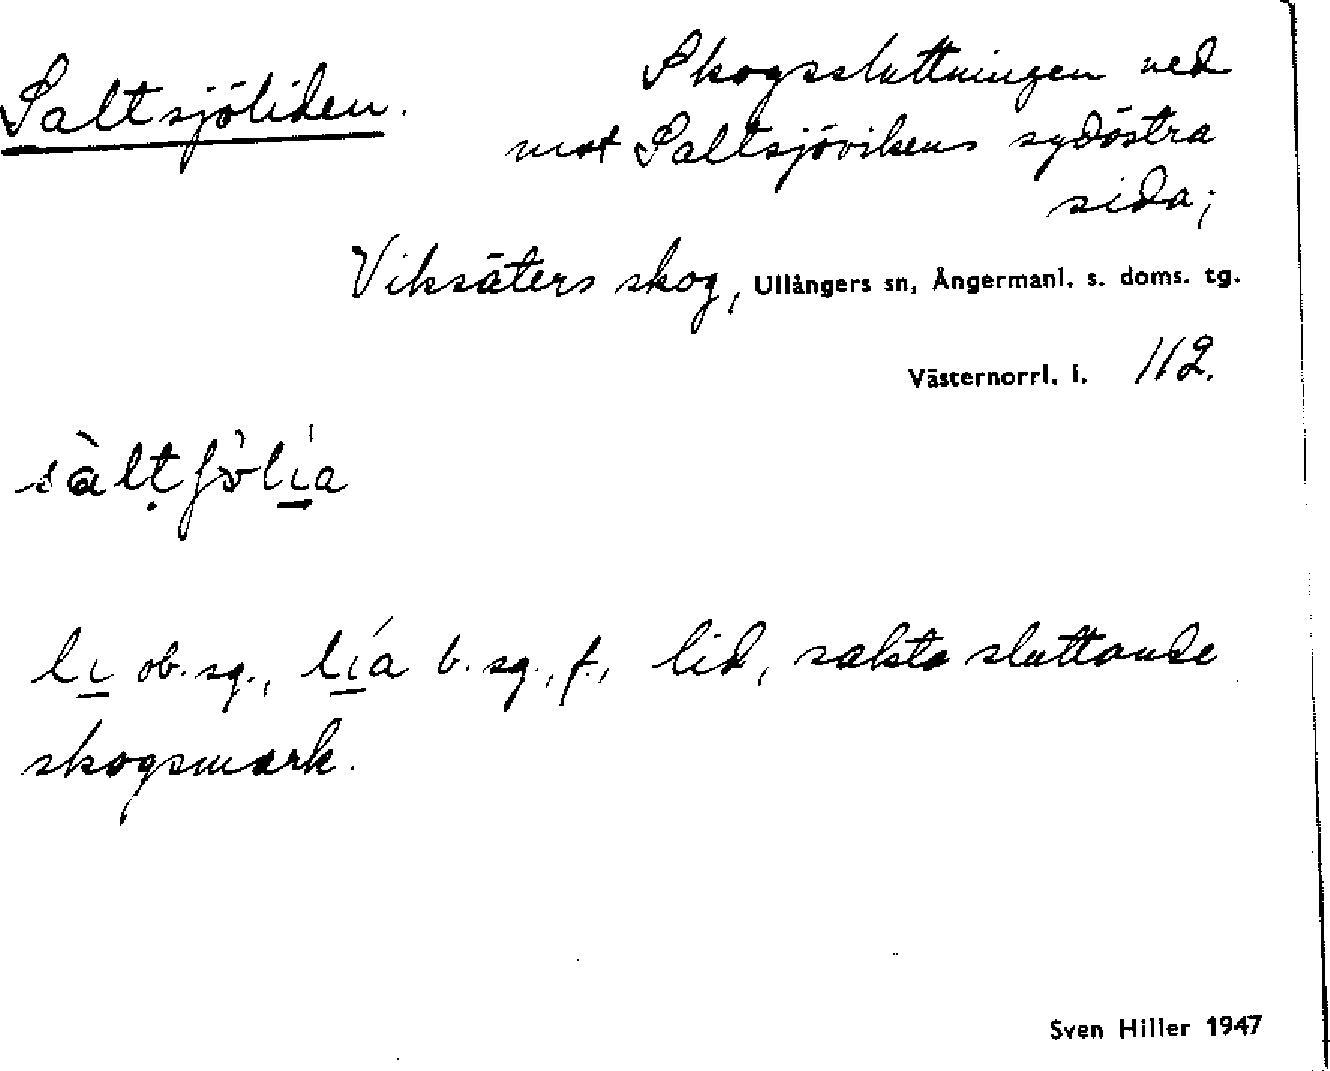 Saltsjöliden. Skogssluttningen ned
mot Saltsjövikens sydöstra
sida;
Viksäters skog, Ullångers sn, Ångermanl. s. doms. tg.
Västernorrl. l. 112.
li ob. sg., lía b. sg., f., lid, sakta sluttande
skogsmark.
Sven Hiller 1947